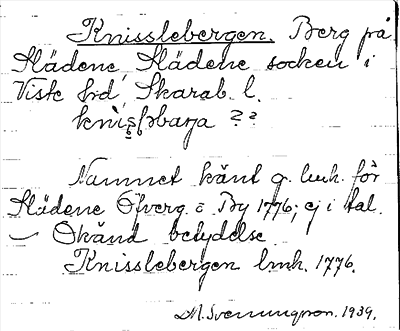 Knisslebergen. Berg på
Slädene, Slädene socken i
Viste hrd, Skarab. l.
??
Namnet känt g. lmh. för
Slädene Öfverg. o By 1776; ej i tal.
– Okänd betydelse
Knisslebergen lmh. 1776.
M. Svenungson. 1939.